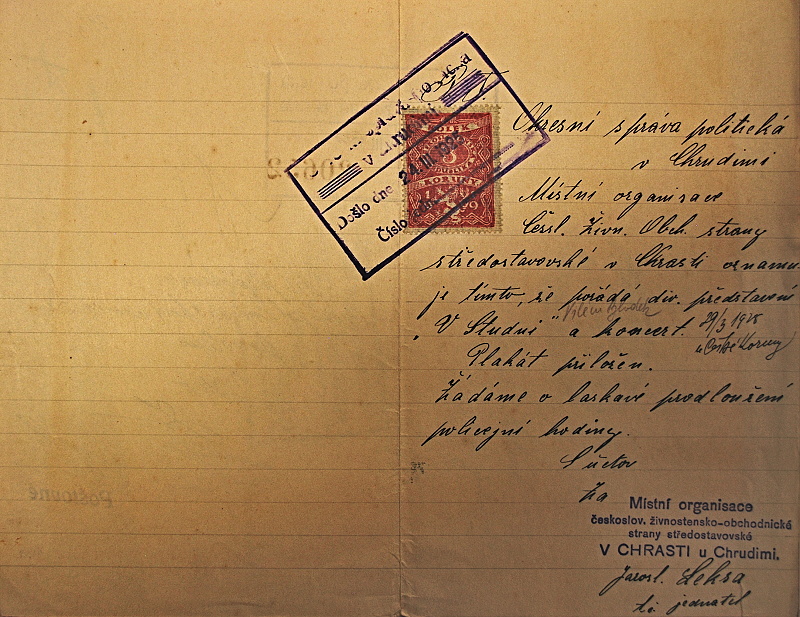 v Chrudimi
Došlo dne 24.III.1925
Číslo
KOLEK
3
KORUNY
1919
Okresní správa politická
v Chrudimi
Místní organisace
Čssl. Živn. Obch. strany
středostavovské v Chrasti oznamu
je tímto, že pořádá div. představení
Vilém Blodek
„V Studni" a koncert. 29/3 1925
u České Koruny
Plakát přiložen.
Žádáme o laskavé prodloužení
policejní hodiny.
S úctou
Za
Místní organisace
českoslov. živnostensko-obchodnické
strany středostavovské
V CHRASTI u Chrudimi.
Jarosl. Leksa
t.č. jednatel
Poštovné